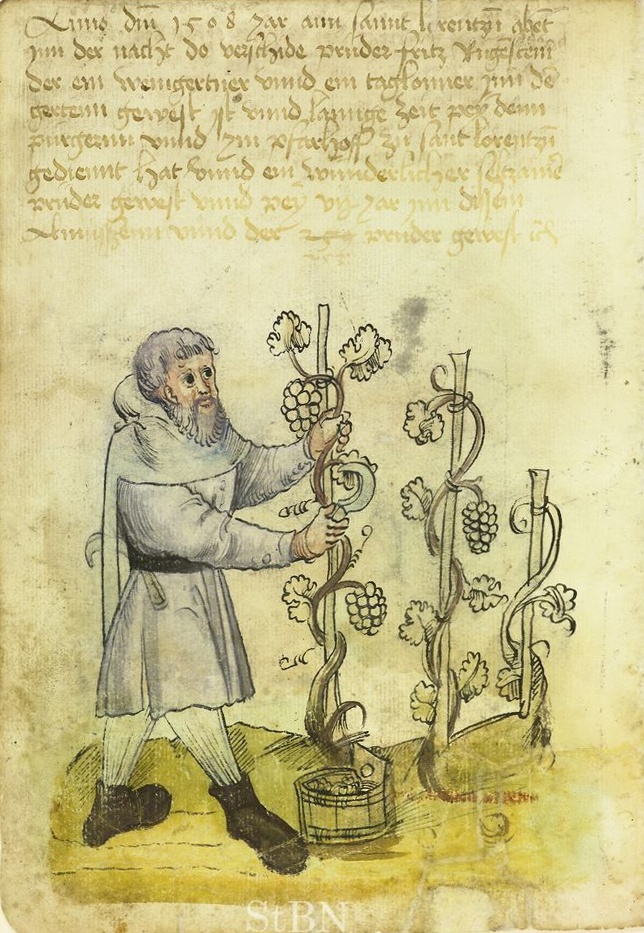 Anno dm̄ 1508 Jar ann sannt lorentzn̄ abet
jnn der nacht do verschide pruder fritz
der ein weingertner vnnd ein taglonner jnn de
gertenn gewest ist vnnd lannge zeit pey denn
purgernn vnnd jm pfarhoff zu sant lorentzn̄
gediennt hat vnnd ein wunderlicher seltzamer
pruder gewest vnnd pey vij Jar jnn disem
Almussenn vnnd der pruder gewest ist
StBN